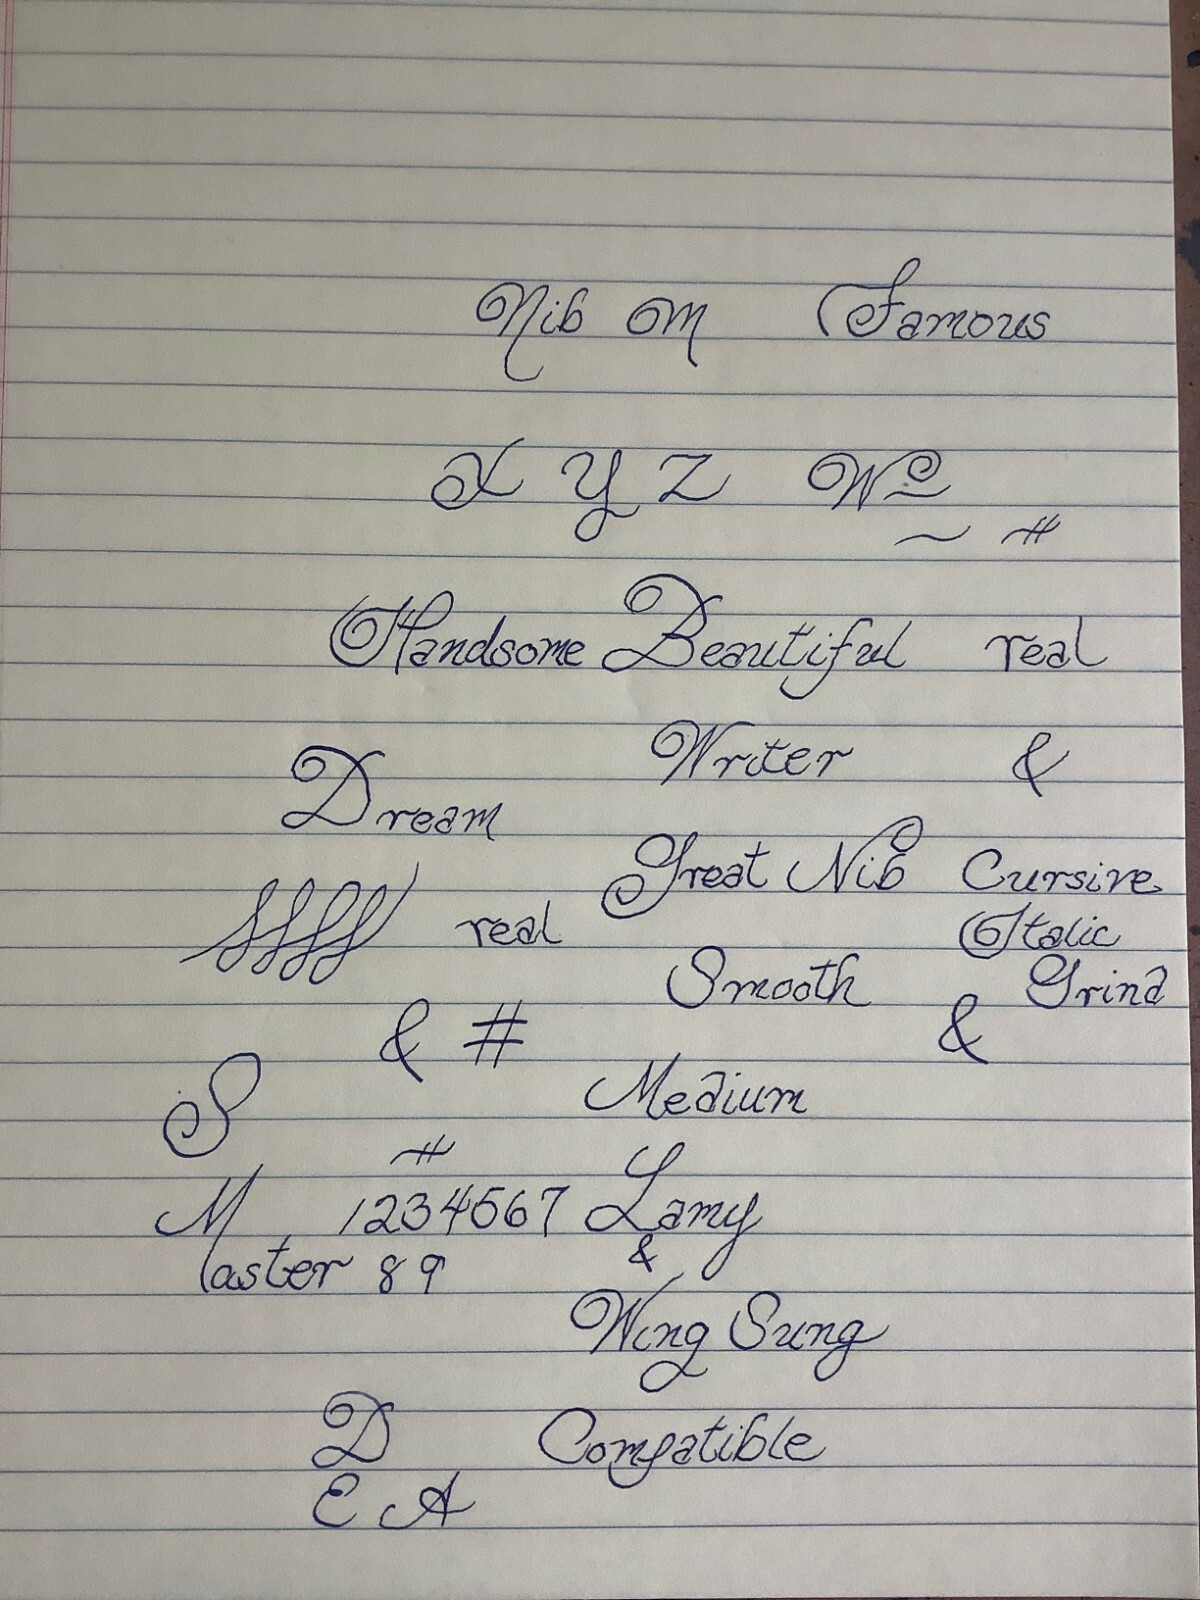 Nib M Famous
X Y Z W
~ #
Handsome Beautiful real
Writer &
Dream
Great Nib Cursive
real Italic
Smooth Grind
& # &
S Medium
#
M 1234567 Lamy
aster 89 &
Wing Sung
D Compatible
E A